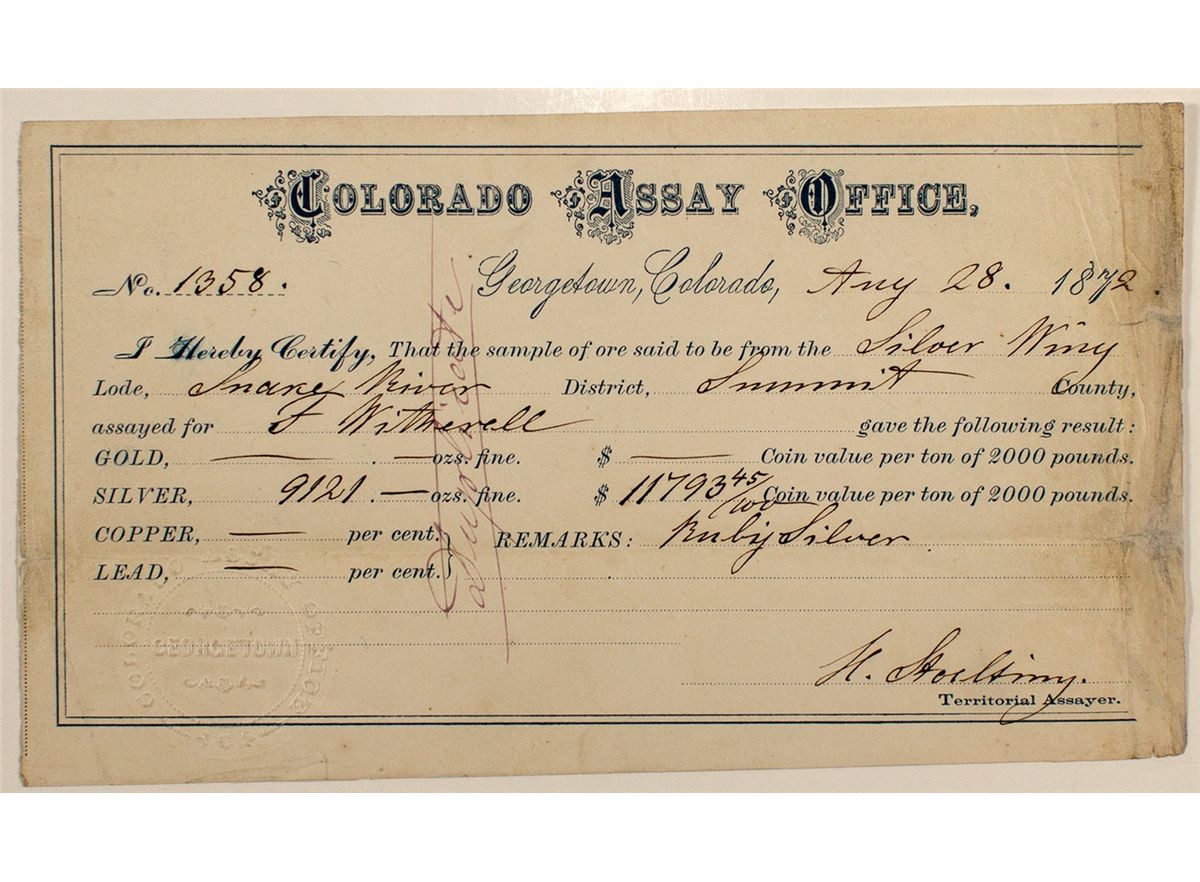 COLORADO ASSAY OFFICE,
No. 1358. Georgetown, Colorado, Aug 28. 1872.
I Hereby Certify, That the sample of ore said to be from the Silver Wing
Lode, Snake River District, Summit County,
assayed for F Witherell gave the following result:
GOLD, — . — ozs. fine. $ — Coin value per ton of 2000 pounds.
SILVER, 9121 . — ozs. fine. $ 11793 45/100 Coin value per ton of 2000 pounds.
COPPER, — per cent. } REMARKS: Ruby Silver
LEAD, — per cent. }
Duplicate
COLORADO ASSAY OFFICE
GEORGETOWN
H. Stoelting.
Territorial Assayer.